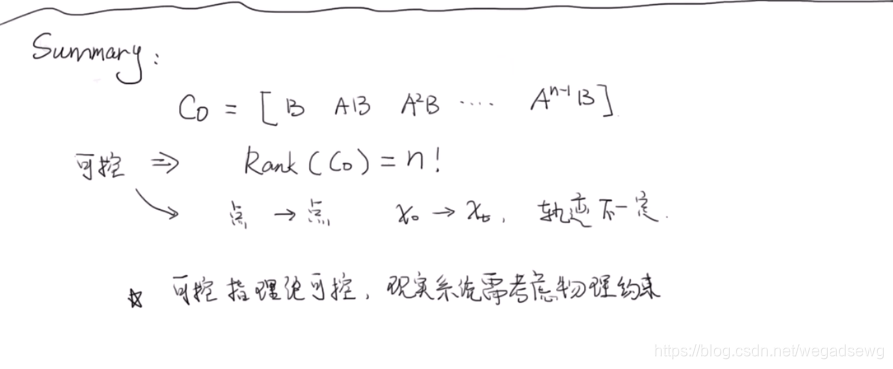 Summary:
Co = [B AB A²B ···· Aⁿ⁻¹B]
可控 ⇒ Rank(Co) = n!
点 → 点 x₀ → xₜ, 轨迹不一定.
☆ 可控指理论可控, 现实系统需考虑物理约束
https://blog.csdn.net/wegadsewg